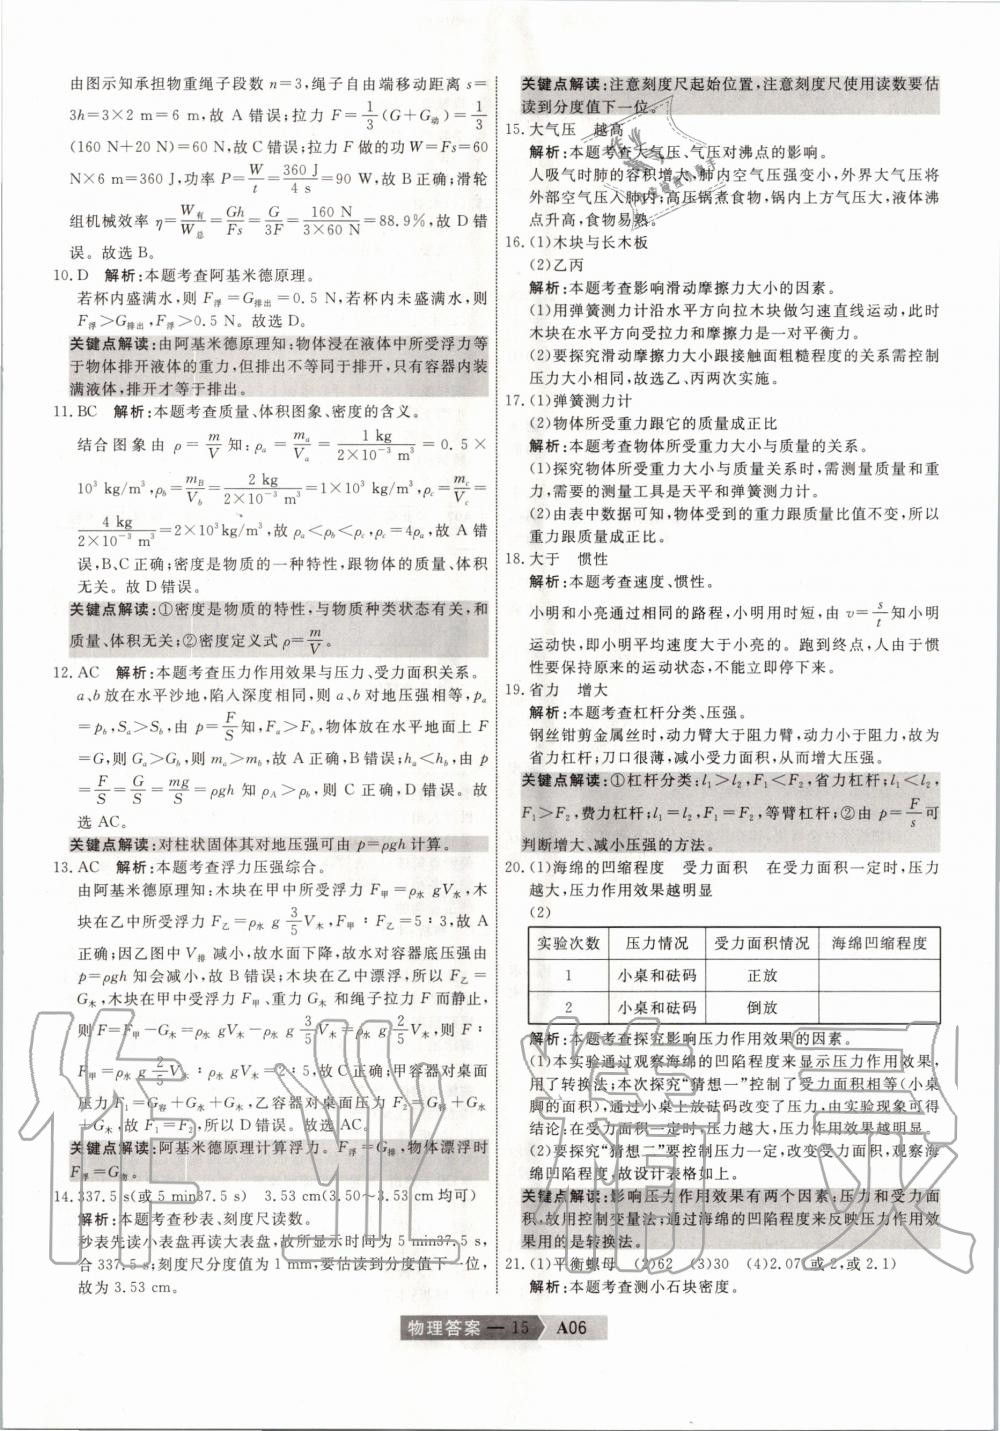 由图示知承担物重绳子段数 n=3,绳子自由端移动距离 s=
3h=3×2 m=6 m,故 A 错误;拉力 F=1/3(G+G动)=1/3
(160 N+20 N)=60 N,故 C 错误;拉力 F 做的功 W=Fs=60
N×6 m=360 J,功率 P=W/t=360 J/4 s=90 W,故 B 正确;滑轮
组机械效率 η=W有/W总=Gh/Fs=G/3F=160 N/3×60 N=88.9%,故 D 错
误。故选 B。
10. D 解析:本题考查阿基米德原理。
若杯内盛满水,则 F浮=G排出=0.5 N,若杯内未盛满水,则
F浮>G排出,F浮>0.5 N。故选 D。
关键点解读:由阿基米德原理知:物体浸在液体中所受浮力等
于物体排开液体的重力,但排出不等同于排开,只有容器内装
满液体,排开才等于排出。
11. BC 解析:本题考查质量、体积图象、密度的含义。
结合图象由 ρ=m/V 知:ρa=ma/Va=1 kg/2×10⁻³ m³=0.5×
10³ kg/m³,ρb=mB/Vb=2 kg/2×10⁻³ m³=1×10³ kg/m³,ρc=mc/Vc=
4 kg/2×10⁻³ m³=2×10³kg/m³,故 ρa<ρb<ρc,ρc=4ρa,故 A 错
误,B、C 正确;密度是物质的一种特性,跟物体的质量、体积
无关。故 D 错误。
关键点解读:①密度是物质的特性,与物质种类状态有关,和
质量、体积无关;②密度定义式 ρ=m/V。
12. AC 解析:本题考查压力作用效果与压力、受力面积关系。
a、b 放在水平沙地,陷入深度相同,则 a、b 对地压强相等,pa
=pb,Sa>Sb,由 p=F/S知,Fa>Fb,物体放在水平地面上 F
=G,则 Ga>Gb,则 ma>mb,故 A 正确,B 错误;ha<hb,由 p
=F/S=G/S=mg/S=ρgh 知 ρA>ρb,则 C 正确,D 错误。故
选 AC。
关键点解读:对柱状固体其对地压强可由 p=ρgh 计算。
13. AC 解析:本题考查浮力压强综合。
由阿基米德原理知:木块在甲中所受浮力 F甲=ρ水 gV木,木
块在乙中所受浮力 F乙=ρ水 g 3/5V木,F甲∶F乙=5∶3,故 A
正确;因乙图中 V排 减小,故水面下降,故水对容器底压强由
p=ρgh 知会减小,故 B 错误;木块在乙中漂浮,所以 F乙=
G木,木块在甲中受浮力 F甲、重力 G木 和绳子拉力 F 而静止,
则 F=F甲-G木=ρ水 gV木-ρ水 g 3/5V木=ρ水 g 2/5V木,则 F∶
F甲=ρ水 g 2/5V木∶ρ水 gV木=2∶5,故 C 正确;甲容器对桌面
压力 F1=G容+G水+G木,乙容器对桌面压力为 F2=G容+G水
+G木,故 F1=F2,所以 D 错误。故选 AC。
关键点解读:阿基米德原理计算浮力。F浮=G排,物体漂浮时
F浮=G物。
14. 337.5 s(或 5 min37.5 s) 3.53 cm(3.50~3.53 cm 均可)
解析:本题考查秒表、刻度尺读数。
秒表先读小表盘再读大表盘,故所显示时间为 5 min37.5 s,
合 337.5 s;刻度尺分度值为 1 mm,要估读到分度值下一位,
故为 3.53 cm。
关键点解读:注意刻度尺起始位置,注意刻度尺使用读数要估
读到分度值下一位。
15. 大气压 越高
解析:本题考查大气压、气压对沸点的影响。
人吸气时肺的容积增大,肺内空气压强变小,外界大气压将
外部空气压入肺内;高压锅煮食物,锅内上方气压大,液体沸
点升高,食物易熟。
16. (1)木块与长木板
(2)乙丙
解析:本题考查影响滑动摩擦力大小的因素。
(1)用弹簧测力计沿水平方向拉木块做匀速直线运动,此时
木块在水平方向受拉力和摩擦力是一对平衡力。
(2)要探究滑动摩擦力大小跟接触面粗糙程度的关系需控制
压力大小相同,故选乙、丙两次实施。
17. (1)弹簧测力计
(2)物体所受重力跟它的质量成正比
解析:本题考查物体所受重力大小与质量的关系。
(1)探究物体所受重力大小与质量关系时,需测量质量和重
力,需要的测量工具是天平和弹簧测力计。
(2)由表中数据可知,物体受到的重力跟质量比值不变,所以
重力跟质量成正比。
18. 大于 惯性
解析:本题考查速度、惯性。
小明和小亮通过相同的路程,小明用时短,由 v=s/t知小明
运动快,即小明平均速度大于小亮的。跑到终点,人由于惯
性要保持原来的运动状态,不能立即停下来。
19. 省力 增大
解析:本题考查杠杆分类、压强。
钢丝钳剪金属丝时,动力臂大于阻力臂,动力小于阻力,故为
省力杠杆;刀口很薄,减小受力面积,从而增大压强。
关键点解读:①杠杆分类:l1>l2,F1<F2,省力杠杆;l1<l2,
F1>F2,费力杠杆;l1=l2,F1=F2,等臂杠杆;②由 p=F/s可
判断增大、减小压强的方法。
20. (1)海绵的凹缩程度 受力面积 在受力面积一定时,压力
越大,压力作用效果越明显
(2)
实验次数 压力情况 受力面积情况 海绵凹缩程度
1 小桌和砝码 正放
2 小桌和砝码 倒放
解析:本题考查探究影响压力作用效果的因素。
(1)本实验通过观察海绵的凹陷程度来显示压力作用效果,
用了转换法;本次探究“猜想一”控制了受力面积相等(小桌
脚的面积),通过小桌上放砝码改变了压力,由实验现象可得
结论:在受力面积一定时,压力越大,压力作用效果越明显。
(2)要探究“猜想二”,控制压力一定,改变受力面积,观察海
绵凹陷程度,故设计表格如上。
关键点解读:影响压力作用效果有两个因素:压力和受力面
积,故用控制变量法;通过海绵的凹陷程度来反映压力作用效
果用的是转换法。
21. (1)平衡螺母 (2)62 (3)30 (4)2.07(或 2,或 2.1)
解析:本题考查测小石块密度。
物理答案 — 15 A06
作业精灵